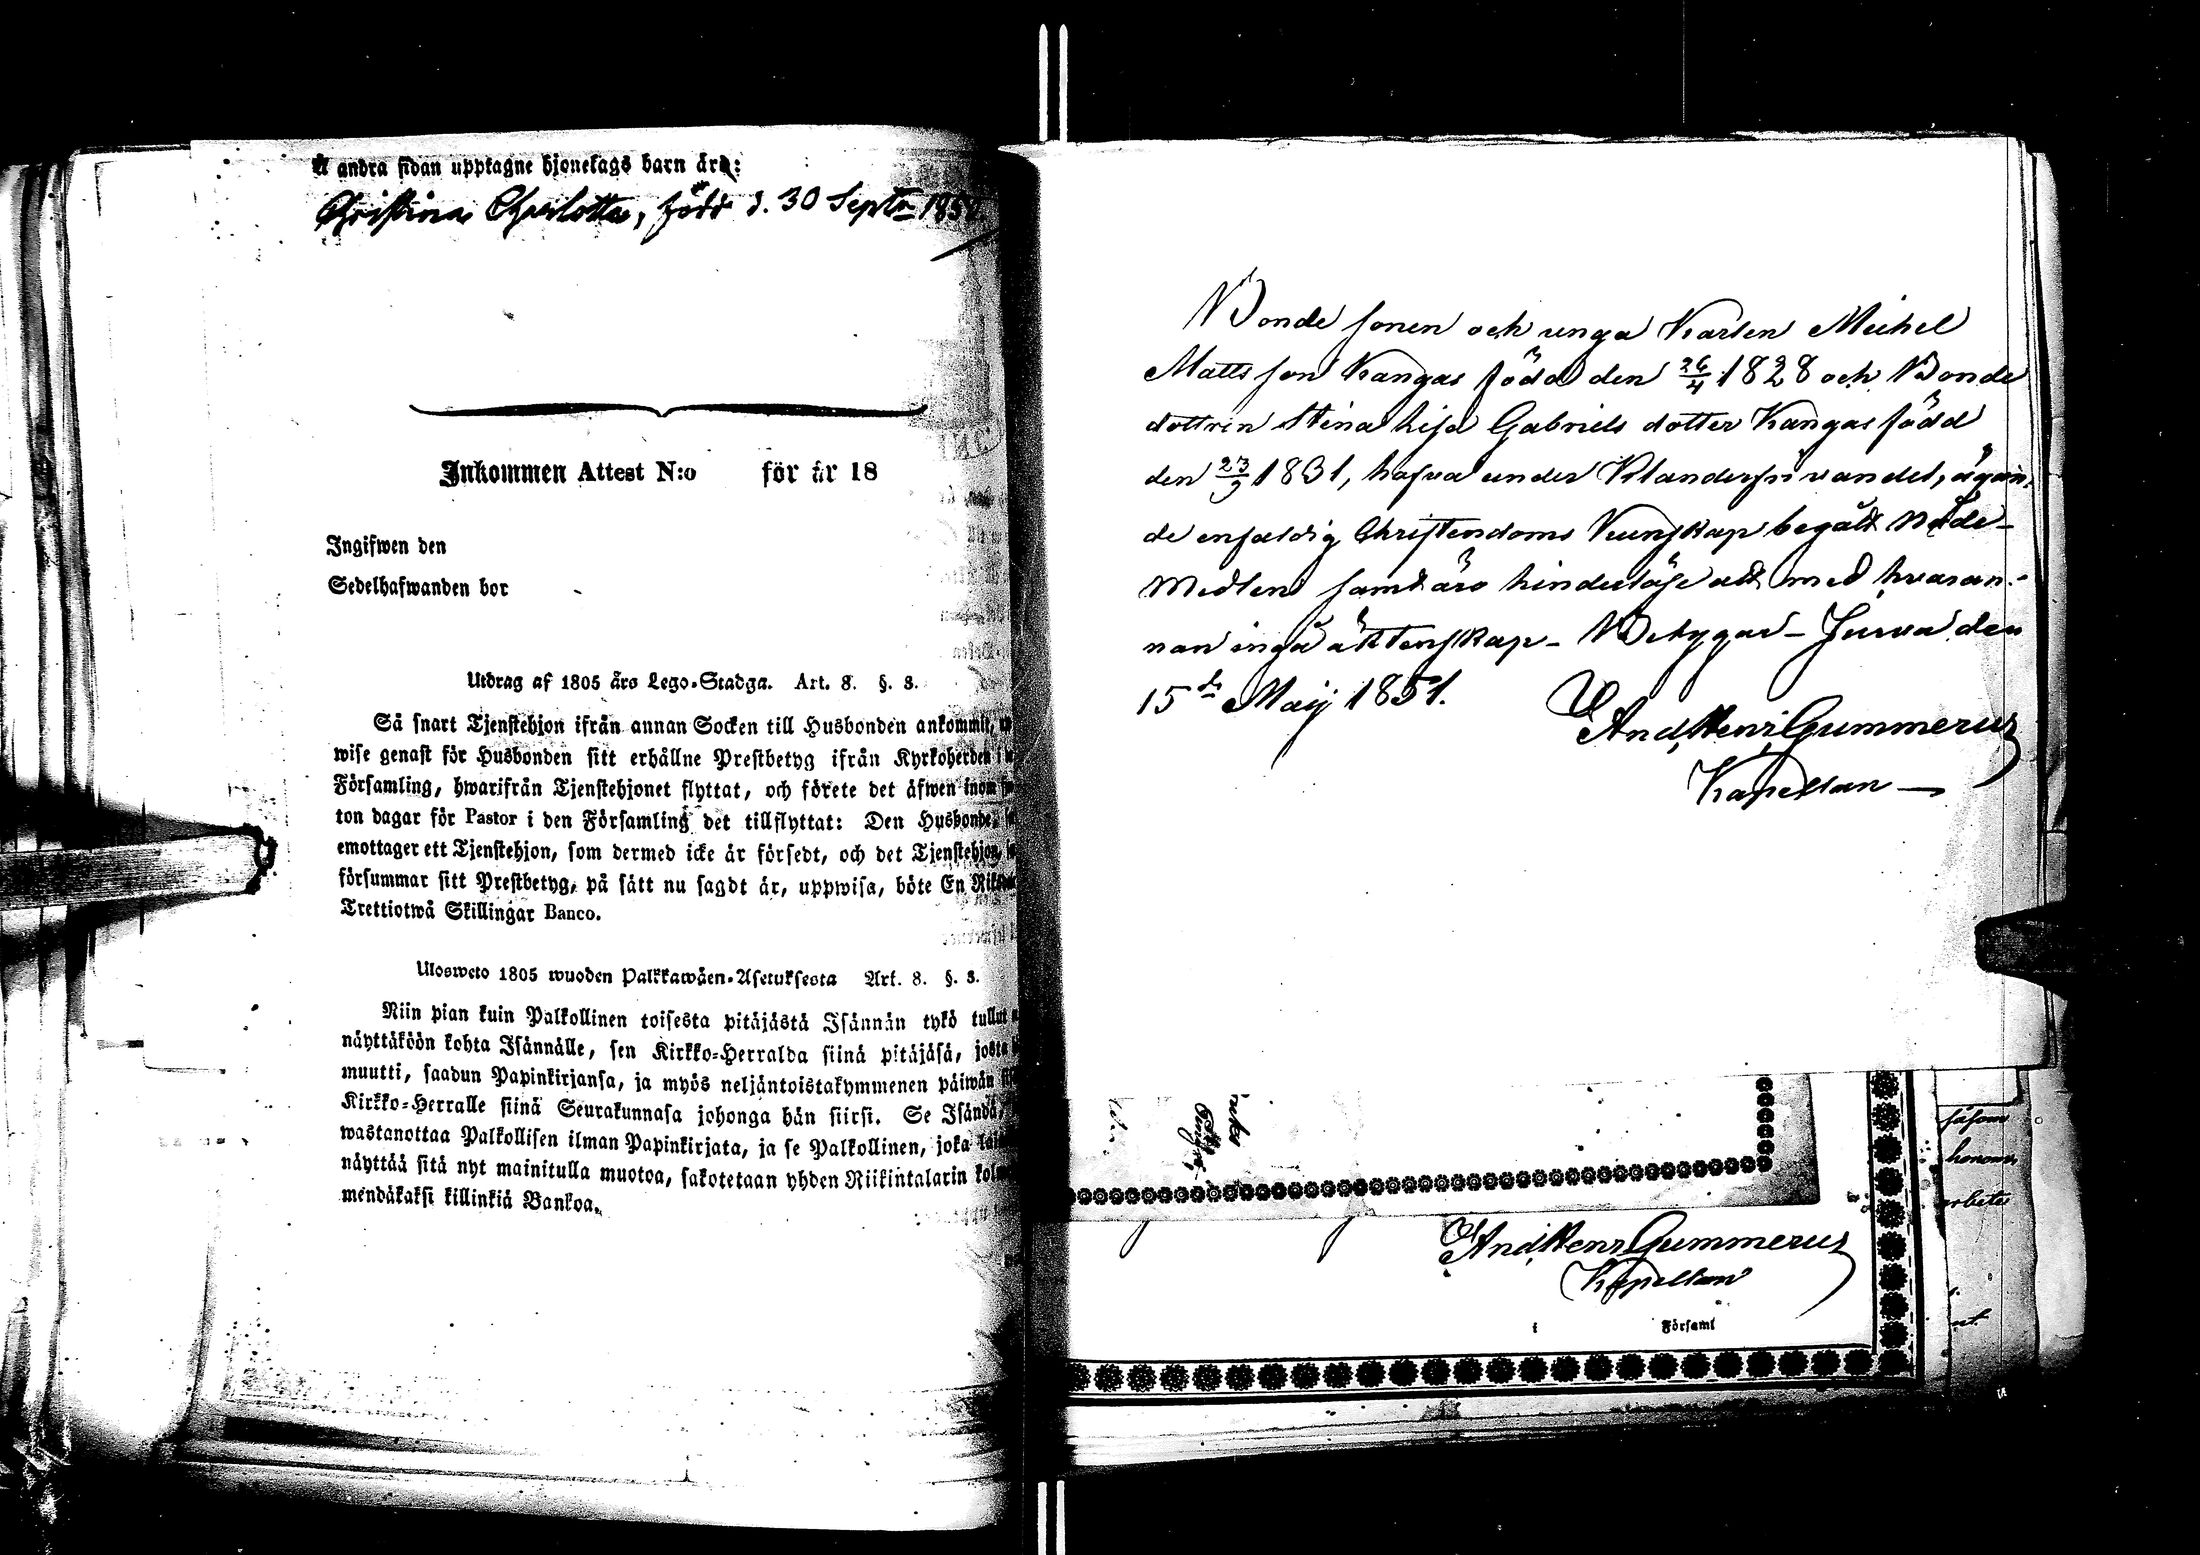 å andra sidan upptagne hjonelags barn äro:
Christina Charlotta, född d. 30 Septr 185
Inkommen Attest N:o för år 18
Ingifwen den
Sedelhafwanden bor
Utdrag af 1805 års Lego-Stadga. Art. 8. §. 3.
Så snart Tjenstehjon ifrån annan Socken till Husbonden ankommit,
wise genast för Husbonden sitt erhållne Prestbetyg ifrån Kyrkoherden i
Församling, hwarifrån Tjenstehjonet flyttat, och förete det äfwen inom
ton dagar för Pastor i den Församling det tillflyttat: Den Husbonde,
emottager ett Tjenstehjon, som dermed icke är försedt, och det Tjenstehjon,
försummar sitt Prestbetyg, på sätt nu sagdt är, uppwisa, böte En
Trettiotwå Skillingar Banco.
Ulosweto 1805 wuoden Palkkawäen-Asetuksesta Art. 8. §. 3.
Niin pian kuin Palkollinen toisesta pitäjästä Isännän tykö tullut
näyttäköön kohta Isännälle, sen Kirkko-Herralda siinä pitäjäsä, josta
muutti, saadun Papinkirjansa, ja myös neljäntoistakymmenen päiwän
Kirkko-Herralle siinä Seurakunnasa johonga hän siirsi. Se Isändä,
wastanottaa Palkollisen ilman Papinkirjata, ja se Palkollinen, joka
näyttää sitä nyt mainitulla muotoa, sakotetaan yhden Riikintalarin
mendäkaksi killinkiä Bankoa.
Bonde sonen och unga Karlen Michel
Matts son Kangas född den 26/4 1828 och Bonde
dottren Stina Lisa Gabriels dotter Kangas född
den 23/9 1831, hafva under Klanderfri vandel, ägan-
de enfaldig Christendoms Kunskap begått Nåde-
Medlen samt äro hinderlöse att med hvaran-
nan ingå äktenskap - Betygar - Jurva den
15de Maij 1851.
And, Henr, Gummerus
Kapellan
And, Henr Gummerus
Kapellan
i Församl